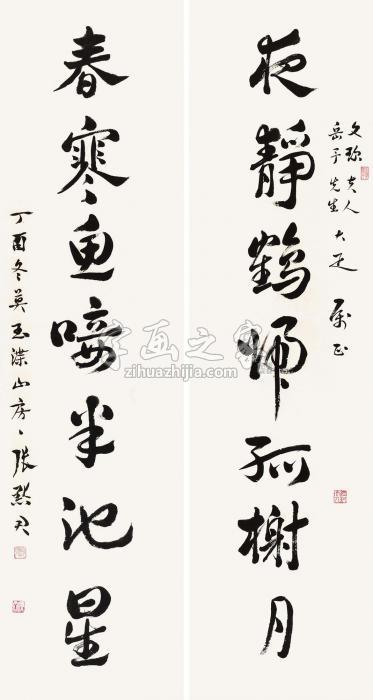 文夫人
岳先生大疋 屬正
夜靜鶴歸孤榭月
春寒魚唼半池星
丁酉冬莫玉渫山房、張默君
字画之家
zihuazhijia.com